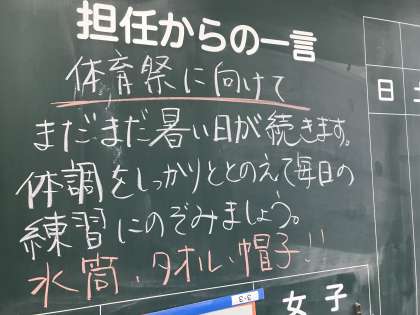 担任からの一言
体育祭に向けて
まだまだ暑い日が続きます。
体調をしっかりととのえて毎日の
練習にのぞみましょう。
水筒、タオル、帽子!!
日 土
3-3
女子